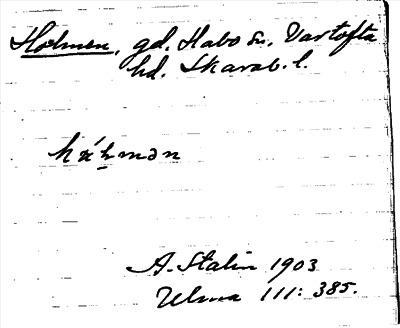 Holmen, gd. Habo sn. Vartofta
hd. Skarab. l.
A. Stalin 1903
Ulma 111: 385.